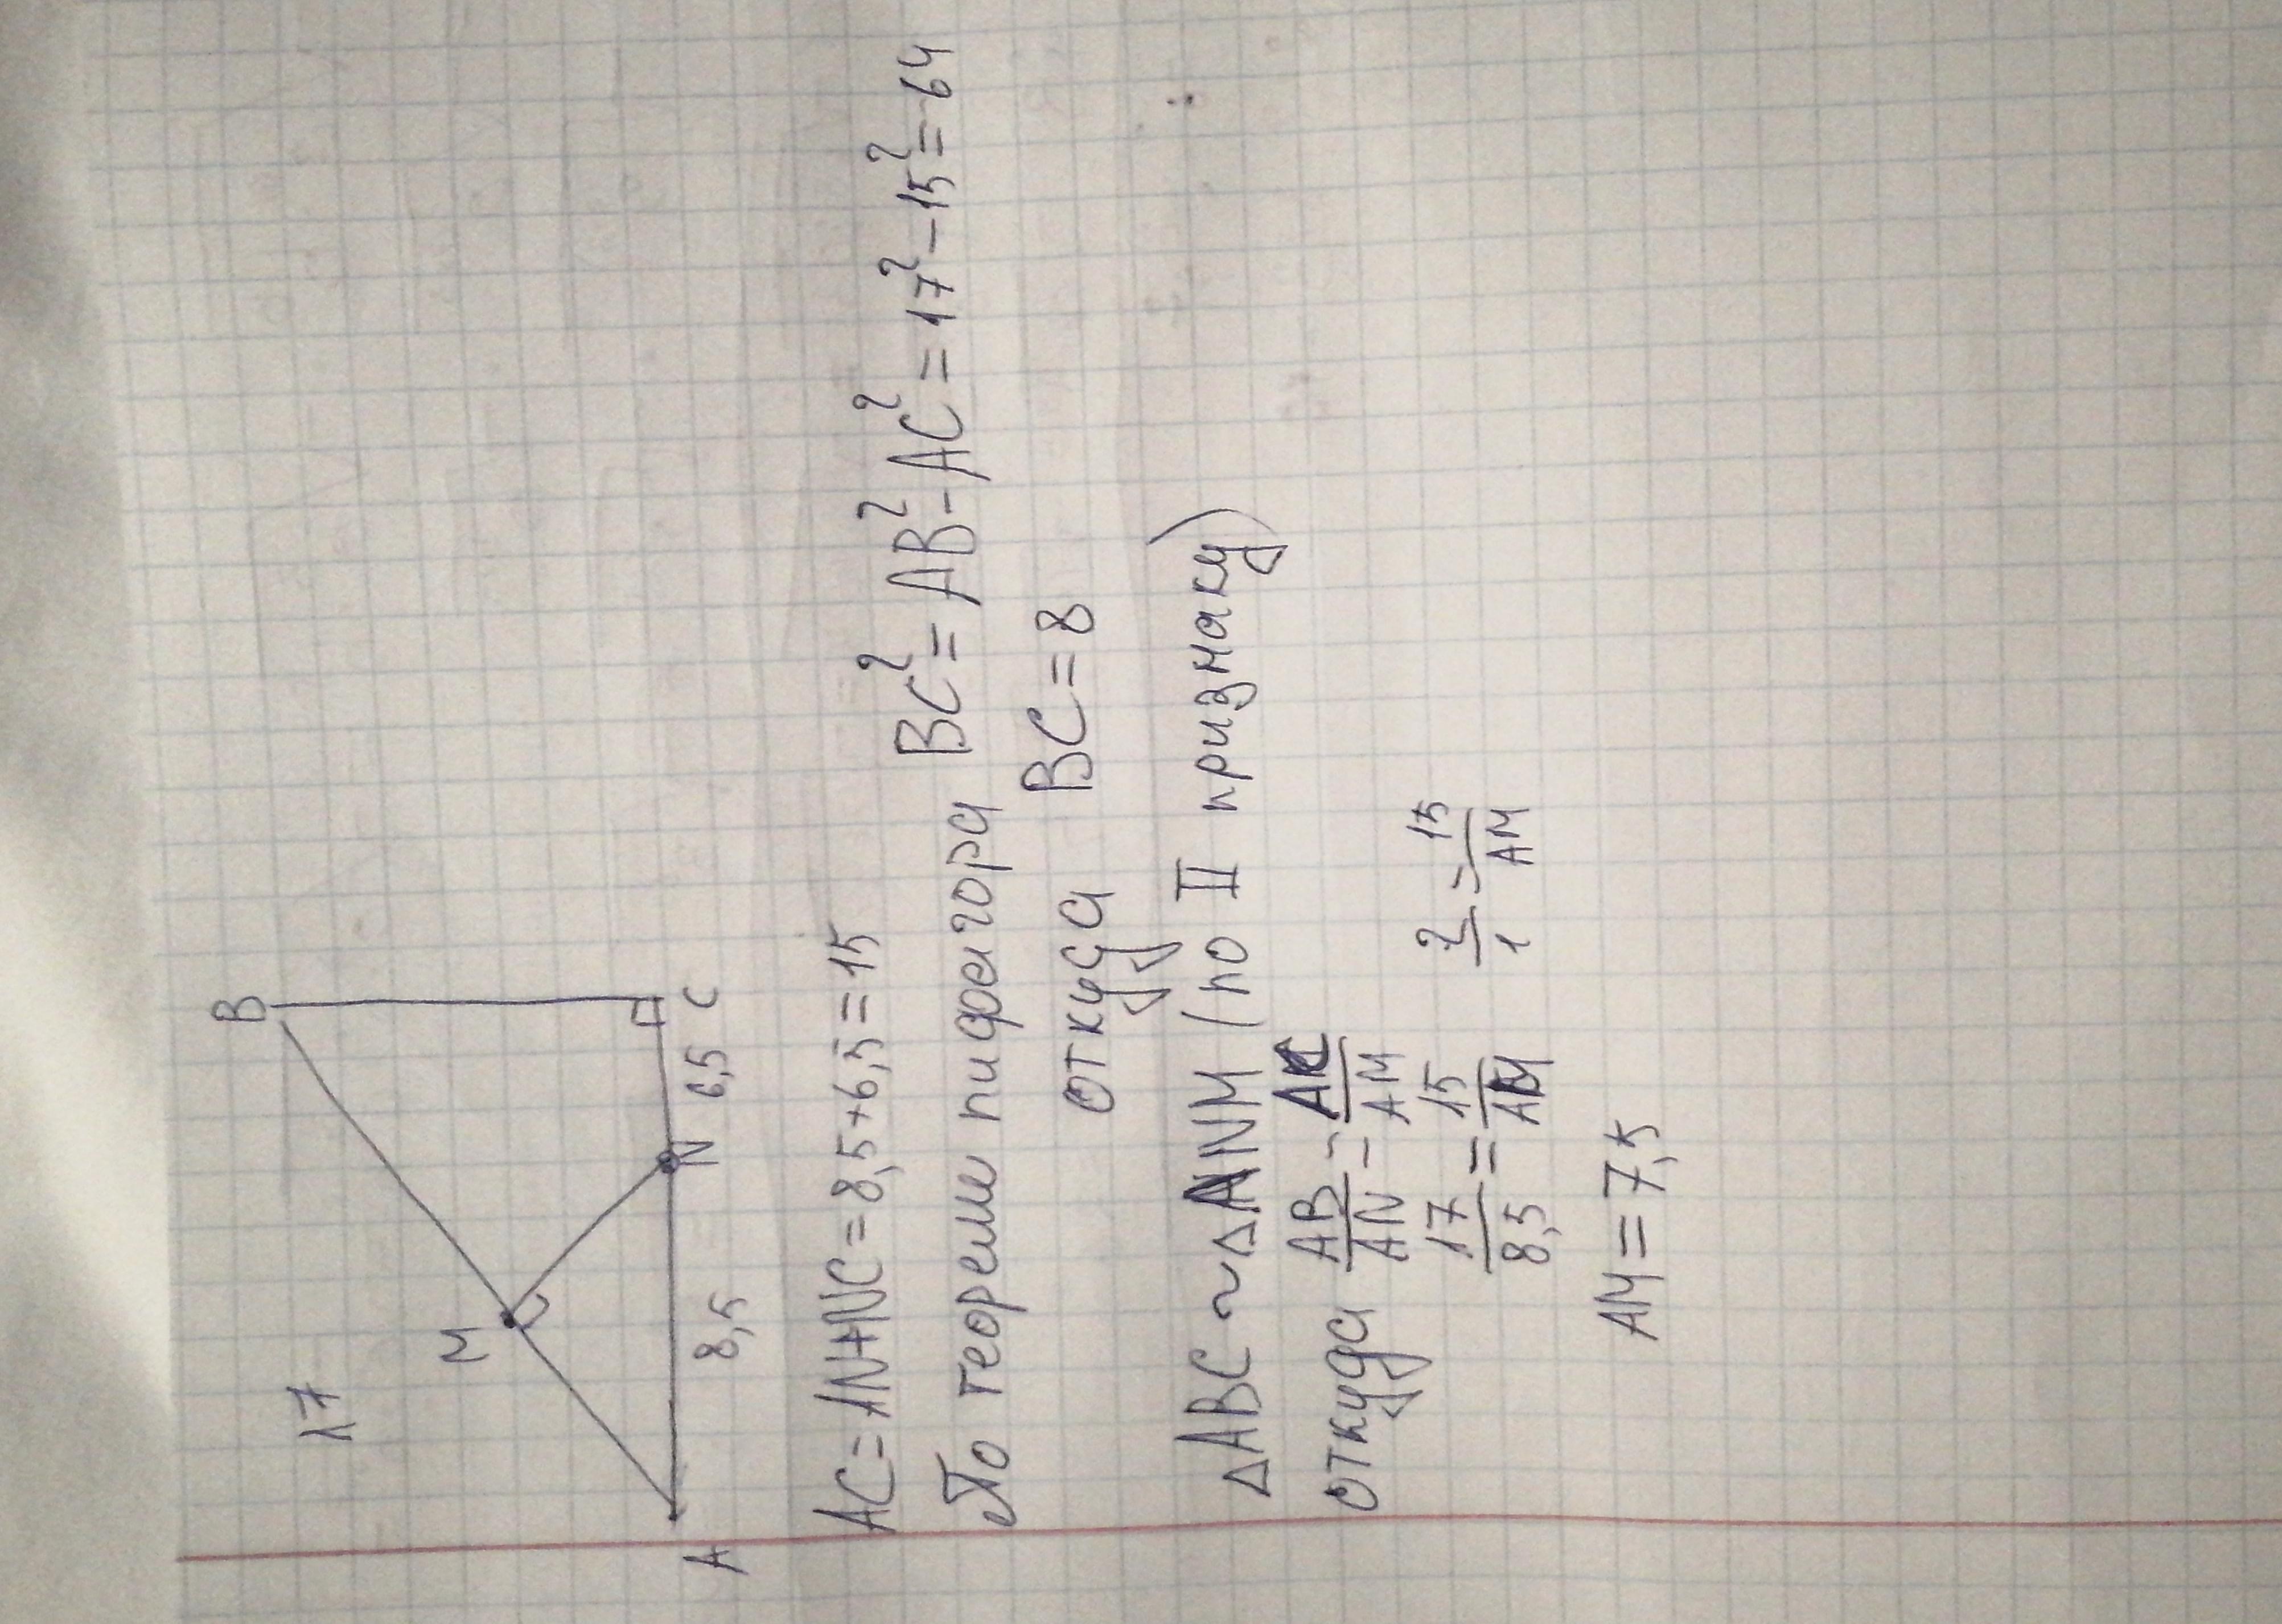 B
17
M
A
8,5
N
6,5
C
AC=AN+NC=8,5+6,5=15
По теореме пифагора BC²=AB²-AC²=17²-15²=64
откуда BC=8
△ABC~△ANM (по II признаку)
откуда AB/AN=AC/AM
17/8,5=15/AM 2/1=15/AM
AM=7,5